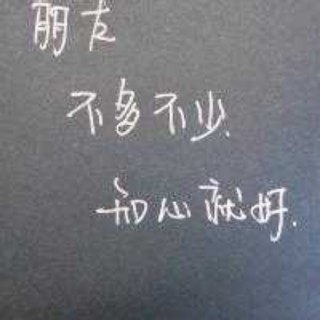 朋友
不多不少
知心就好.